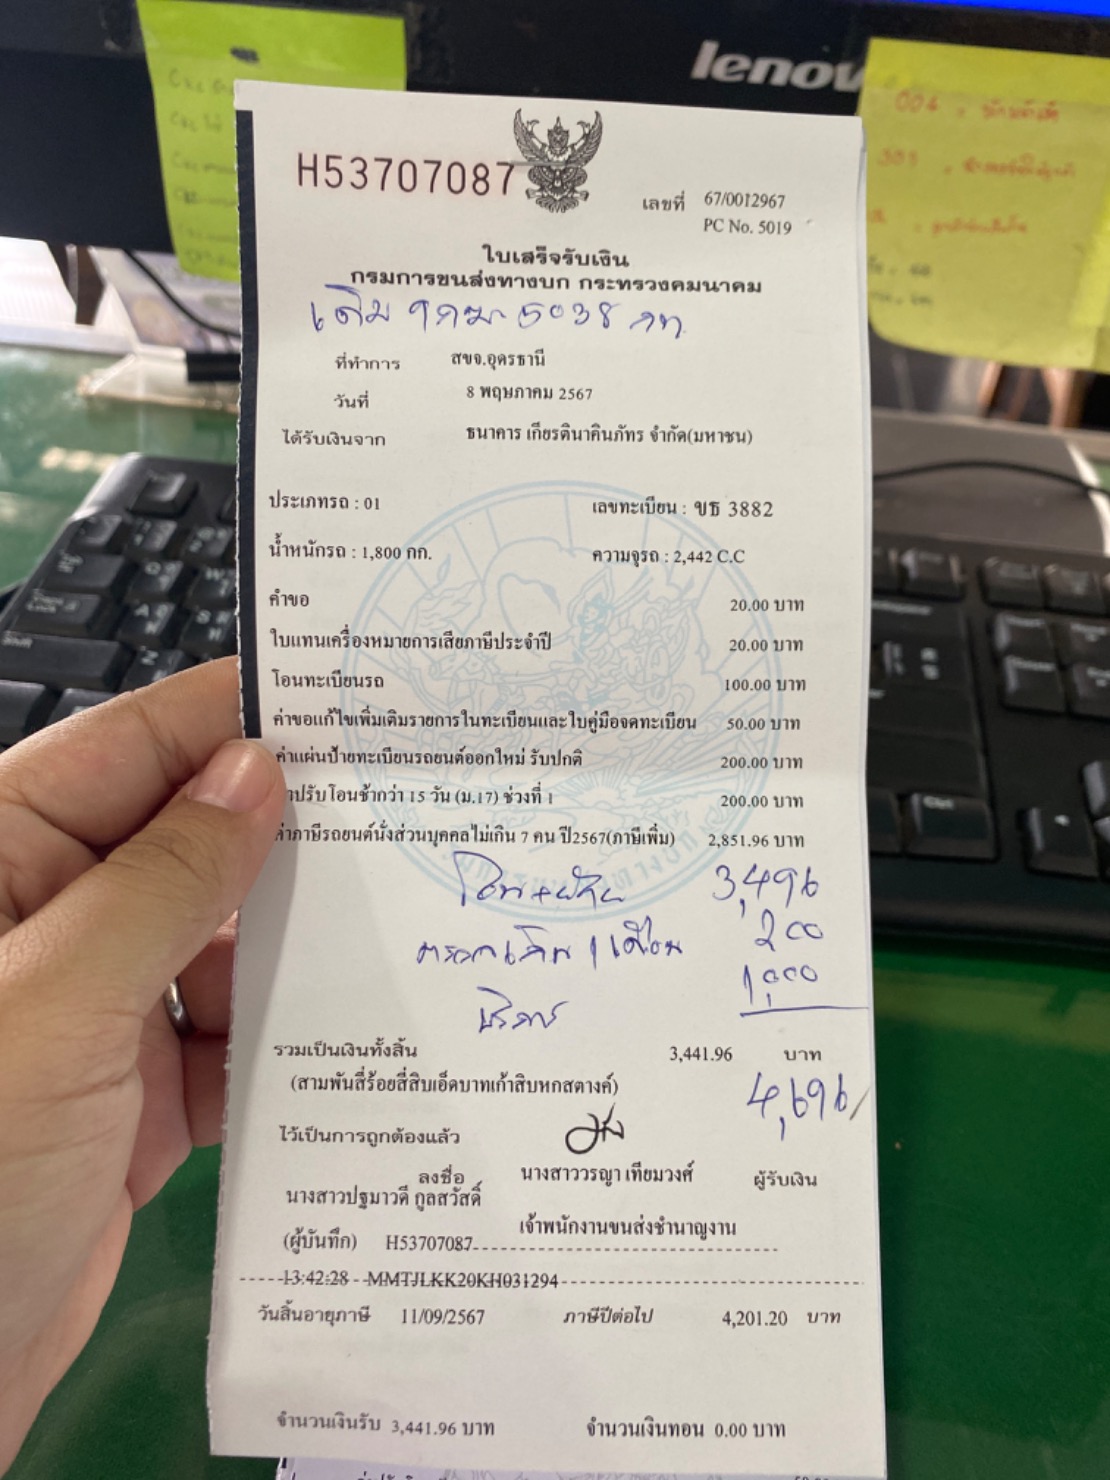 lenov
H53707087
เลขที่ 67/0012967
PC No. 5019
ใบเสร็จรับเงิน
กรมการขนส่งทางบก กระทรวงคมนาคม
เดิม 5038 กท
ที่ทำการ สขจ.อุดรธานี
วันที่ 8 พฤษภาคม 2567
ได้รับเงินจาก ธนาคาร เกียรตินาคินภัทร จำกัด(มหาชน)
ประเภทรถ : 01 เลขทะเบียน : ขธ 3882
น้ำหนักรถ : 1,800 กก. ความจุรถ : 2,442 C.C
คำขอ 20.00 บาท
ใบแทนเครื่องหมายการเสียภาษีประจำปี 20.00 บาท
โอนทะเบียนรถ 100.00 บาท
ค่าขอแก้ไขเพิ่มเติมรายการในทะเบียนและใบคู่มือจดทะเบียน 50.00 บาท
ค่าแผ่นป้ายทะเบียนรถยนต์ออกใหม่ รับปกติ 200.00 บาท
าปรับโอนช้ากว่า 15 วัน (ม.17) ช่วงที่ 1 200.00 บาท
ค่าภาษีรถยนต์นั่งส่วนบุคคลไม่เกิน 7 คน ปี2567(ภาษีเพิ่ม) 2,851.96 บาท
3,496
1 เดือน 200
บริการ 1,000
รวมเป็นเงินทั้งสิ้น 3,441.96 บาท
(สามพันสี่ร้อยสี่สิบเอ็ดบาทเก้าสิบหกสตางค์) 4,696/
ไว้เป็นการถูกต้องแล้ว
ลงชื่อ นางสาววรญา เทียมวงศ์ ผู้รับเงิน
นางสาวปฐมาวดี กูลสวัสดิ์
เจ้าพนักงานขนส่งชำนาญงาน
(ผู้บันทึก) H53707087
13:42:28 MMTJLKK20KH031294
วันสิ้นอายุภาษี 11/09/2567 ภาษีปีต่อไป 4,201.20 บาท
จำนวนเงินรับ 3,441.96 บาท จำนวนเงินทอน 0.00 บาท